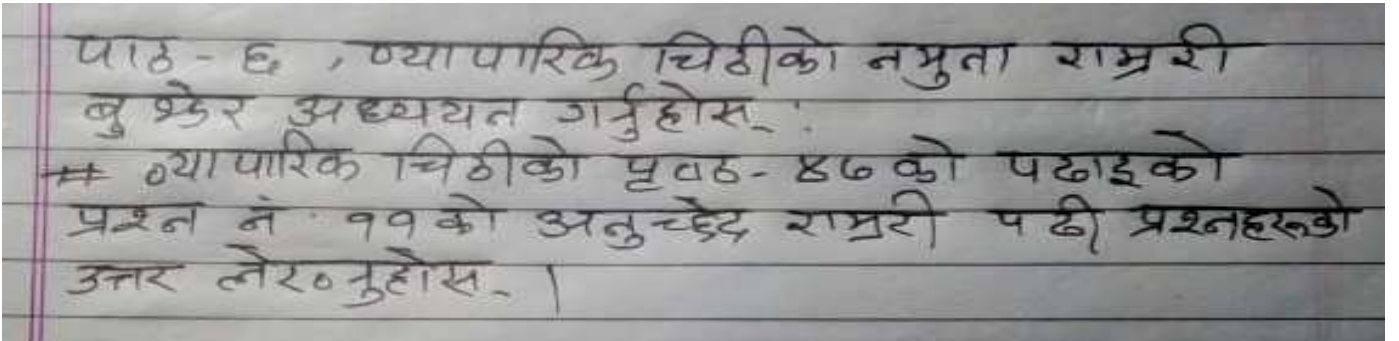 पाठ - ६ , व्यापारिक चिठीको नमुना राम्ररी
बुझेर अध्ययन गर्नुहोस् :
# व्यापारिक चिठीको पृष्ठ - ४७ को पढाइको
प्रश्न नं ११को अनुच्छेद राम्ररी पढी प्रश्नहरूको
उत्तर लेख्नुहोस् ।